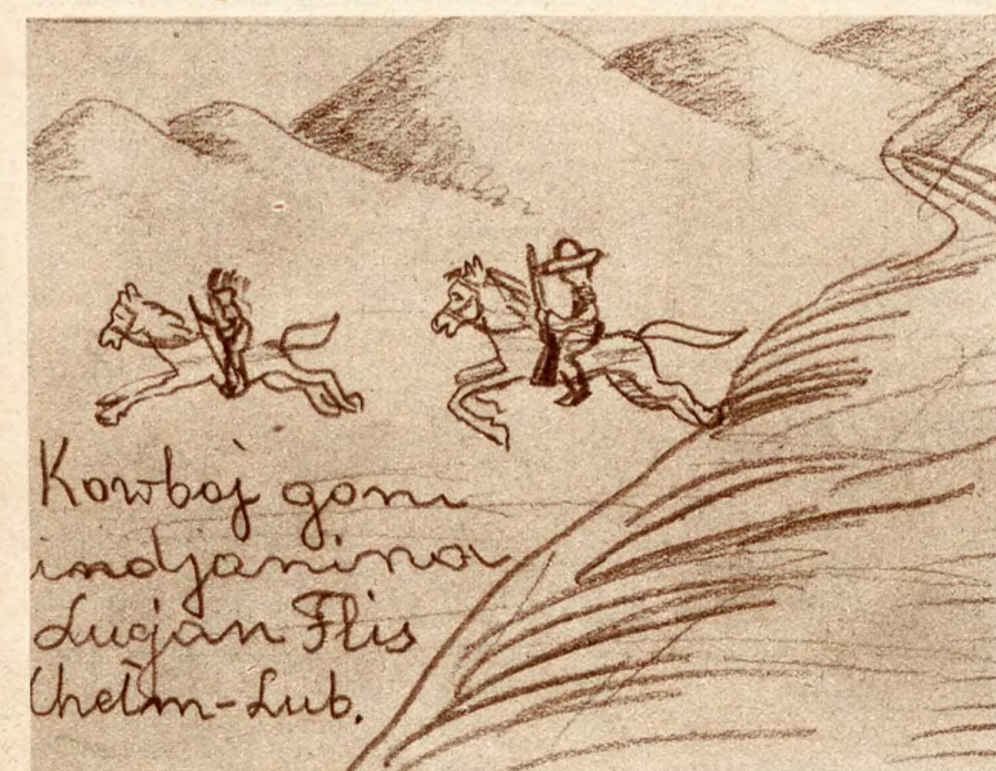 Kowboj goni
indjanina
Lucjan Flis
Chełm-Lub.